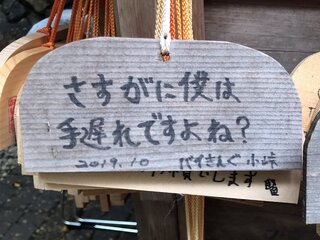 さすがに僕は
手遅れですよね?
2019.10 バイきんぐ 小峠
します